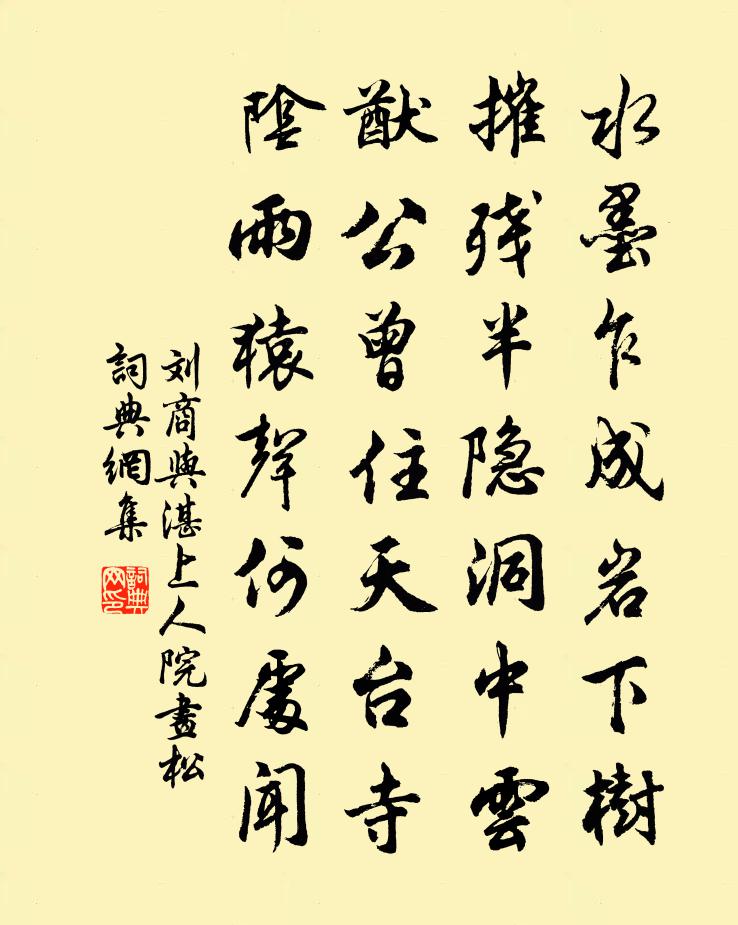 水墨乍成岩下樹
摧残半隐洞中雲
猷公曾住天台寺
陰雨猿聲何處闻
刘商與湛上人院畫松
詞典網集
詞典网印